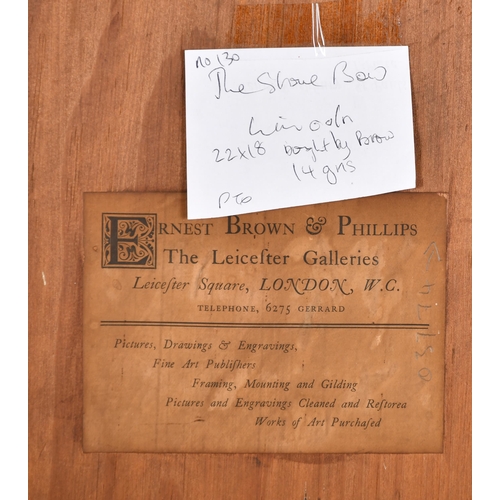 no 130
The Stone Bow
Lincoln
22x18 bought by Brow
14 gns
PTO
ERNEST BROWN & PHILLIPS
The Leiceſter Galleries
Leiceſter Square, LONDON, W.C.
TELEPHONE, 6275 GERRARD
Pictures, Drawings & Engravings,
Fine Art Publiſhers
Framing, Mounting and Gilding
Pictures and Engravings Cleaned and Reſtored
Works of Art Purchaſed